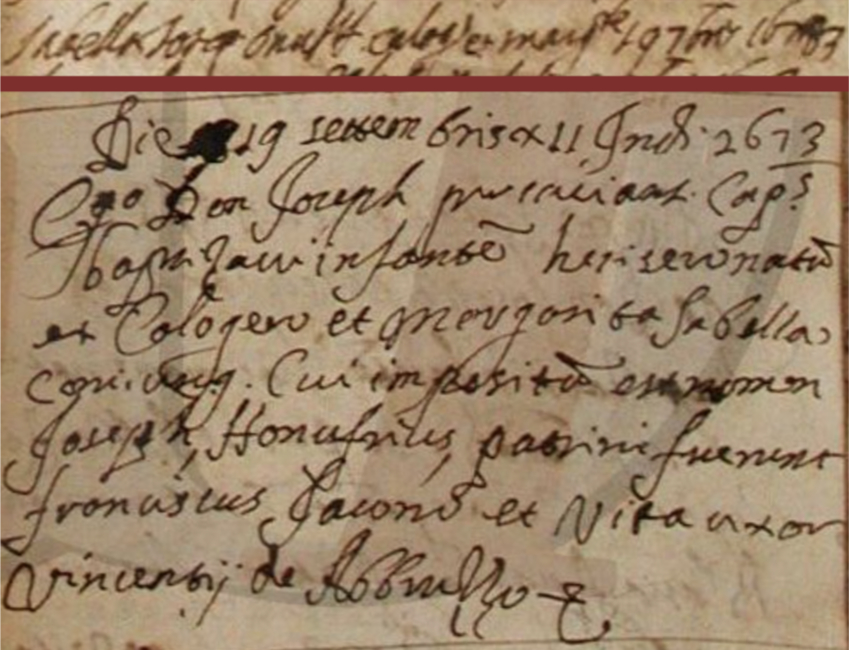 Sabella Josep Onuff. calog. et marg.te 19 7bre 1673
Die 19 settembris XII Ind. 1673
Ego Don Joseph Cap.s
baptizavi infantē heri sero natū
ex Calogero et Margarita Sabella
coniug. Cui impositū est nomen
Joseph, Honufrius, patrini fuerunt
franciscus Jaconō et Vita uxor
Vincentij de Abbruzzo